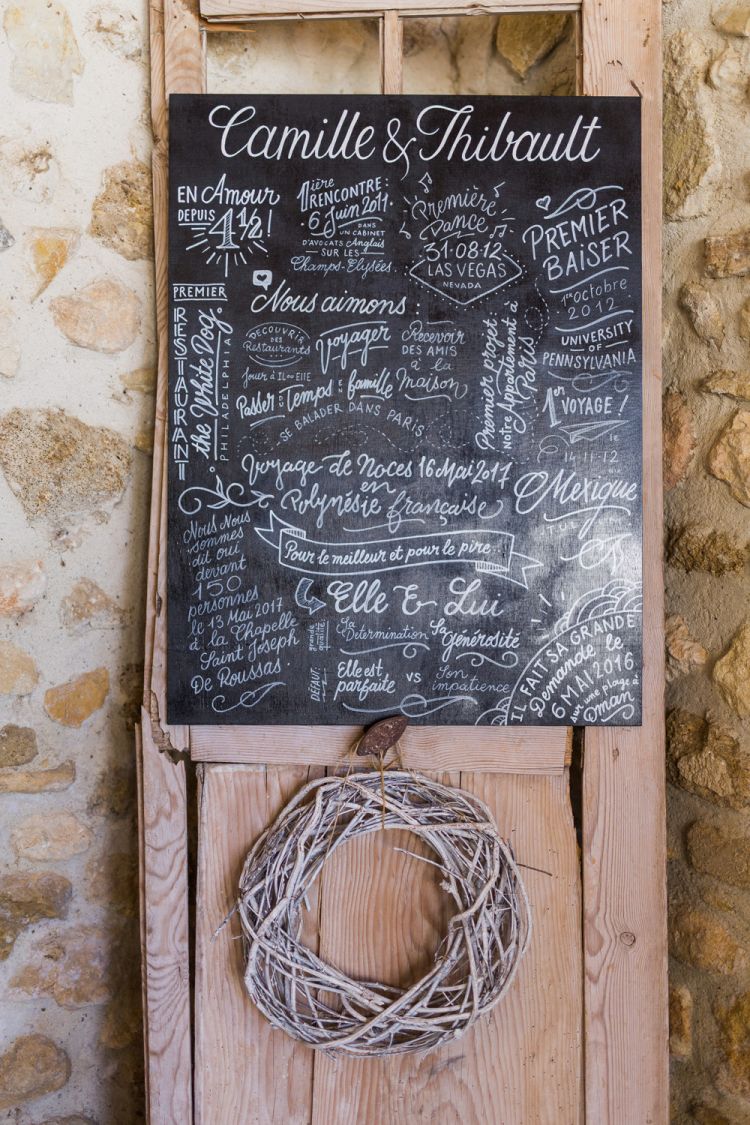 Camille & Thibault
EN Amour
DEPUIS
4 1/2 !
1ière
RENCONTRE :
6 Juin 2011
DANS
UN CABINET
D'AVOCATS Anglais
SUR LES
Champs-Elysées
Première
Dance
31·08·12
LAS VEGAS
NEVADA
PREMIER
BAISER
1er octobre
2012
UNIVERSITY
OF
PENNSYLVANIA
PREMIER
RESTAURANT
the White Dog
PHILADELPHIA
Nous aimons :
DECOUVRIR
DES
Restaurants
Voyager
Recevoir
DES AMIS
à la
Maison
Jouer à l'Elfe
Passer du Temps EN famille
SE BALADER DANS PARIS
Premier projet
Notre Appartement à
Paris
1er VOYAGE !
le
14·11·12
Mexique
TULUM
Voyage de Noces 16 Mai 2017
en
Polynésie française
Pour le meilleur et pour le pire
Nous Nous
sommes
dit oui
devant
150
personnes
le 13 Mai 2017
à la Chapelle
Saint Joseph
De Roussas.
Elle & Lui
grande
qualité
Sa
Determination
Sa
générosité
DÉFAUT:
Elle est
parfaite
VS
Son
impatience
IL FAIT SA GRANDE
Demande le
6 MAI 2016
sur une plage à
Oman